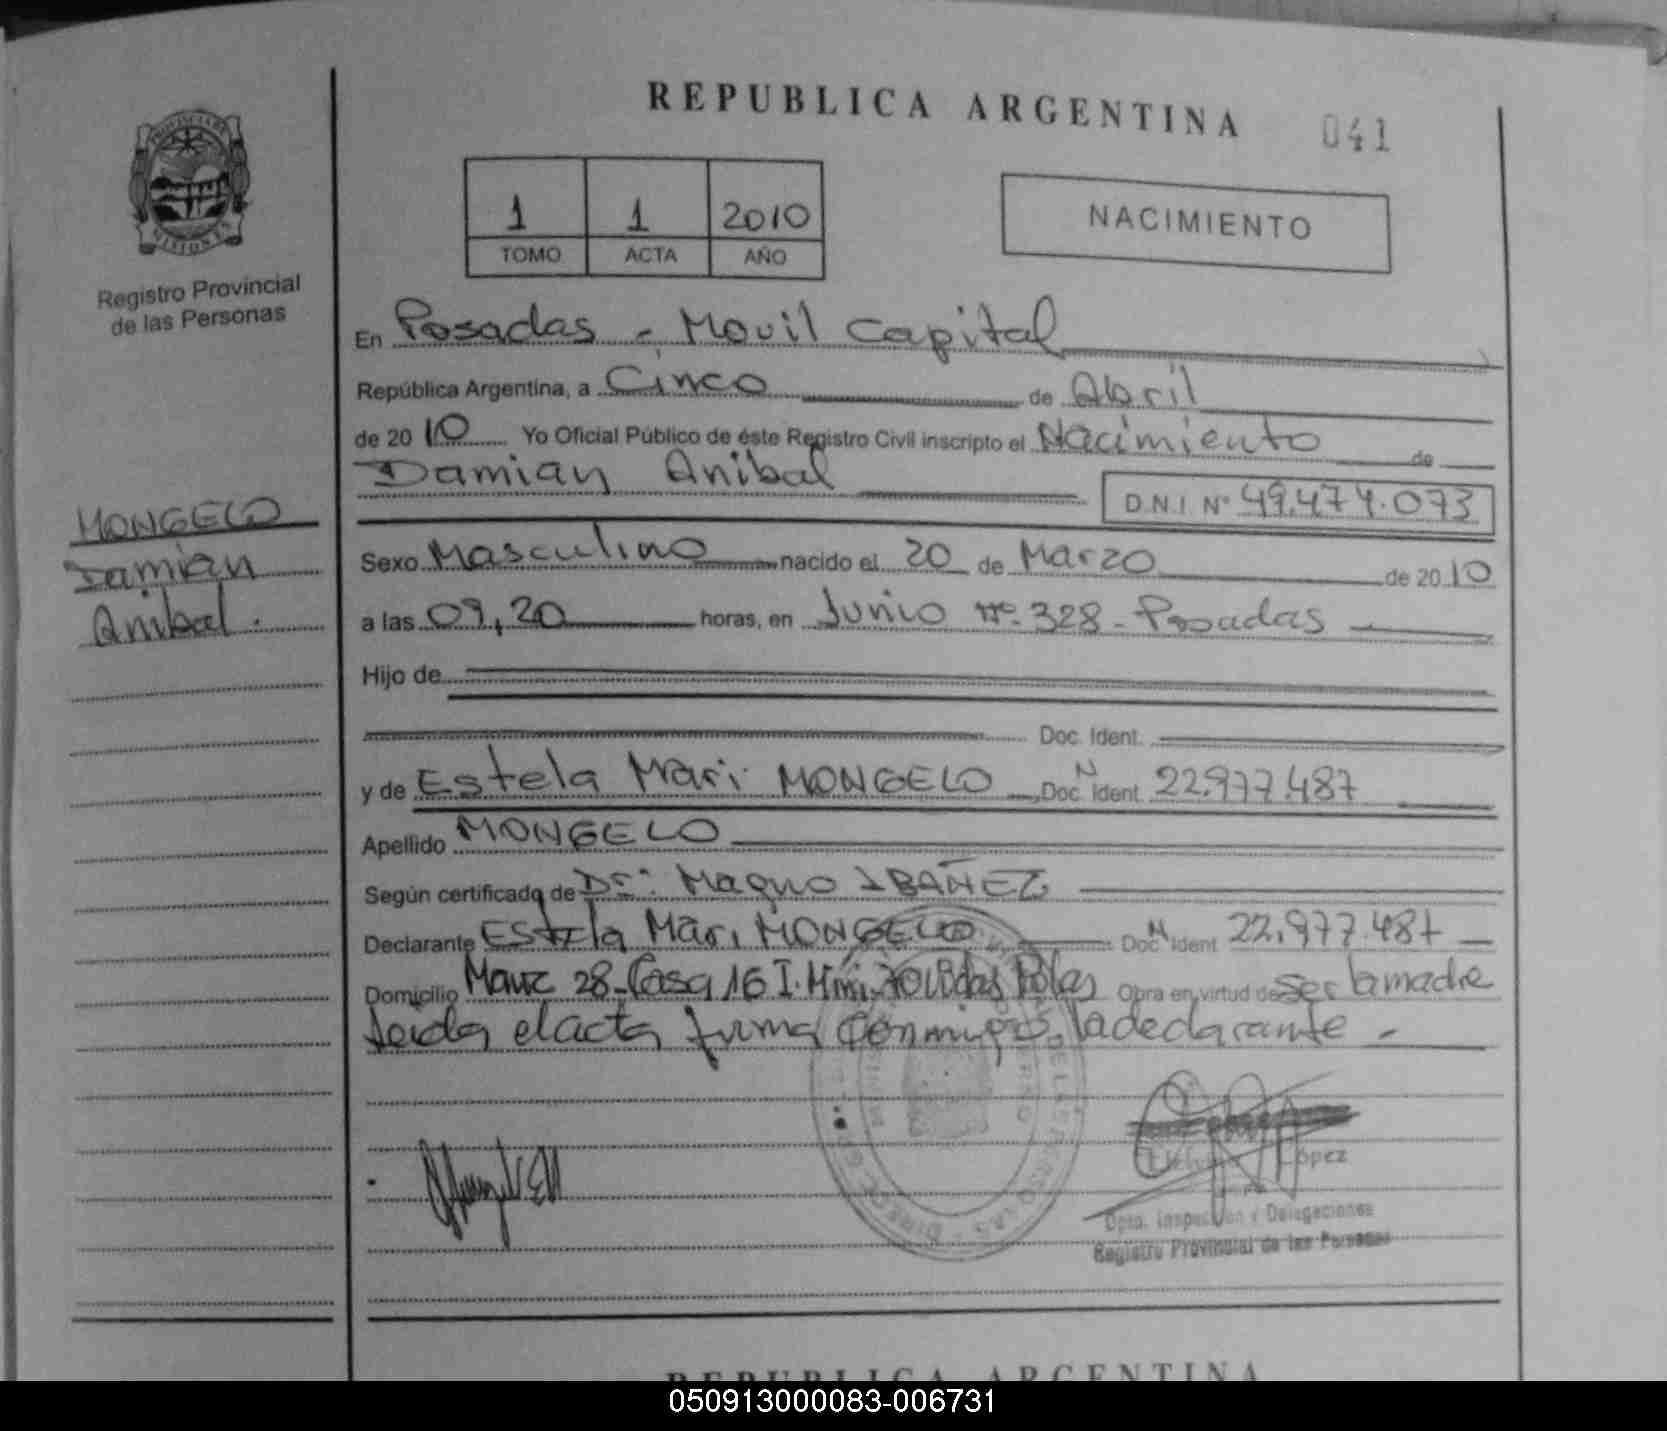 REPUBLICA ARGENTINA
041
PROVINCIA DE
MISIONES
Registro Provincial
de las Personas
1 1 2010
TOMO ACTA AÑO
NACIMIENTO
En Posadas - Movil Capital
República Argentina, a Cinco de Abril
de 20 10 Yo Oficial Público de éste Registro Civil inscripto el Nacimiento de
Damian Anibal
D.N.I. Nº 49.474.073
MONGELO
Damian
Anibal.
Sexo Masculino nacido el 20 de Marzo de 20 10
a las 09,20 horas, en Junio Nº 328 - Posadas
Hijo de
Doc. Ident.
y de Estela Mari MONGELO Doc. N Ident. 22.977.487
Apellido MONGELO
Según certificado de Dr: Magno IBAÑEZ
Declarante Estela Mari MONGELO Doc N Ident 22.977.487
Domicilio Manz 28-Casa 16 I. Mini Obra en virtud de Ser la madre
Leida el acta firma conmigo, la declarante -
López
Dpto. Inspeccion y Delegaciones
Registro Provincial de las Personas
REPUBLICA ARGENTINA
050913000083-006731